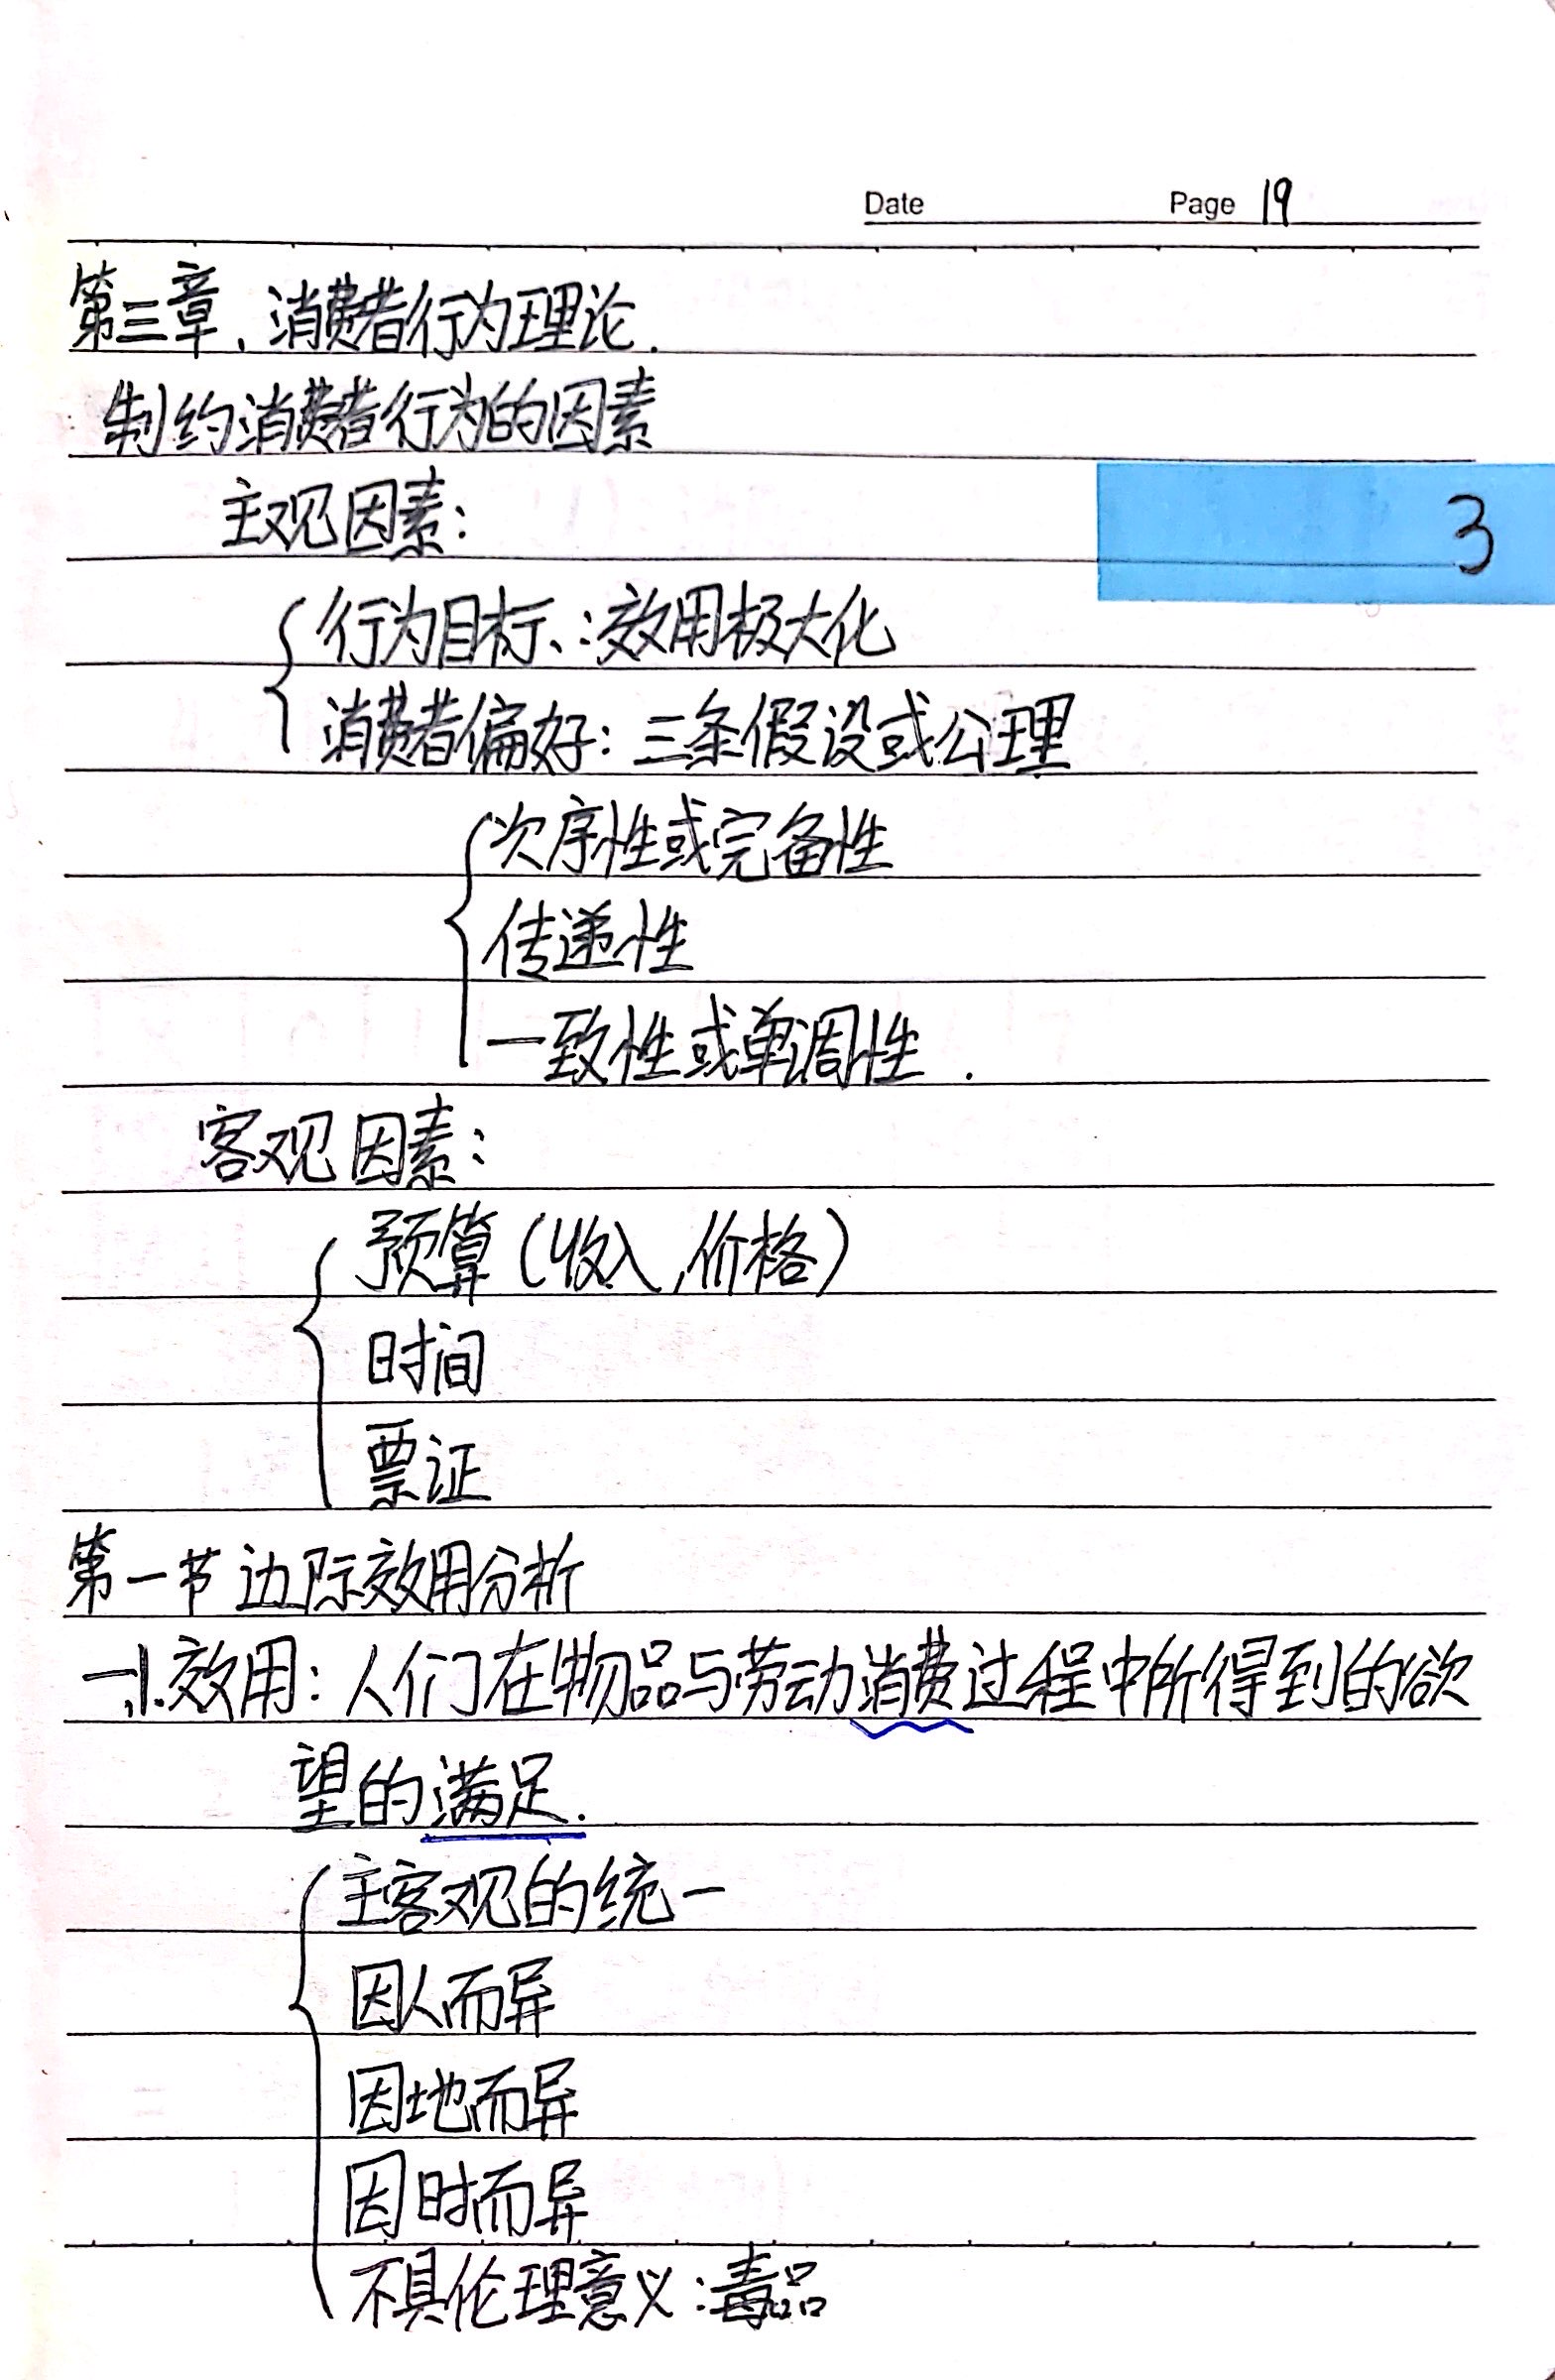 Date Page 19
第三章、消费者行为理论.
制约消费者行为的因素
主观因素:
3
行为目标、:效用极大化
消费者偏好:三条假设或公理
次序性或完备性
传递性
一致性或单调性.
客观因素:
预算(收入,价格)
时间
票证
第一节 边际效用分析
一、1.效用:人们在物品与劳动消费过程中所得到的欲
望的满足.
主客观的统一
因人而异
因地而异
因时而异
不具伦理意义:毒品